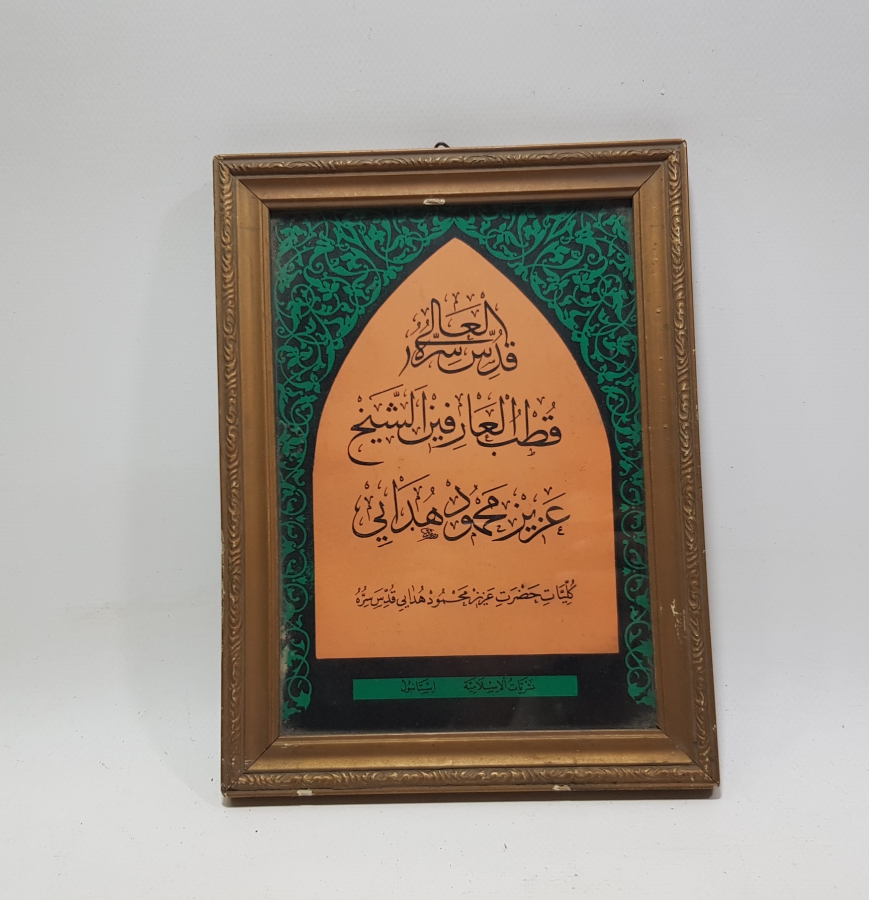 قُدِّسَ سِرُّهُ العَالِي
قُطْبُ العَارِفِينَ الشَّيْخ
عَزِيز مَحْمُود هُدَايِي
كُلِّيَّاتِ حَضْرَتِ عَزِيز مَحْمُود هُدَايِي قُدِّسَ سِرُّهُ
نَشْرِيَّاتُ الْاِسْلَامِيَّة اِسْتَانْبُول